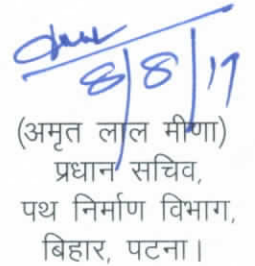 8/8/17
(अमृत लाल मीणा)
प्रधान सचिव,
पथ निर्माण विभाग,
बिहार, पटना।